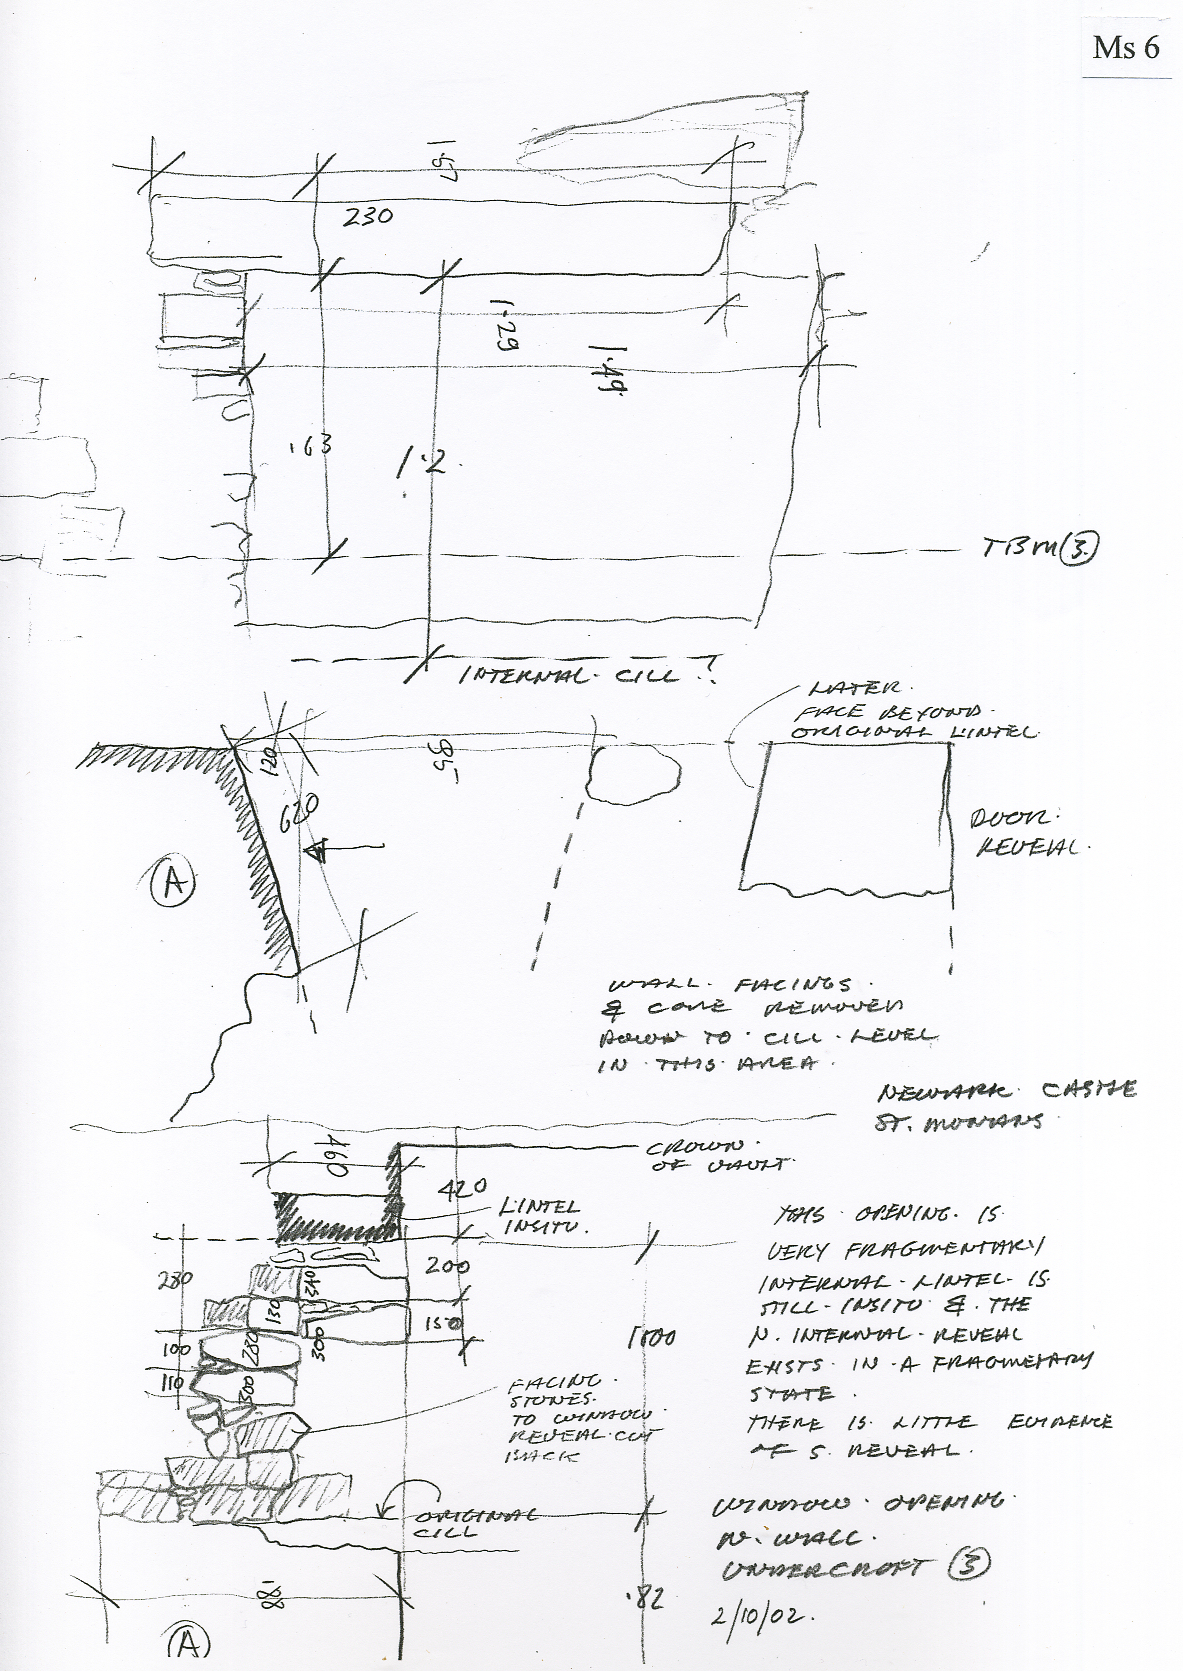 Ms 6
1.57
230
1.29
1.49
.63
1.2
TBM (3)
INTERNAL CILL ?
LATER
FACE BEYOND
ORIGINAL LINTEL
120
.95
620
DOOR
REVEAL
A
WALL FACINGS
& CORE REMOVED
DOWN TO CILL LEVEL
IN THIS AREA
NEWARK CASTLE
ST. MONANS
460
CROWN
OF VAULT
420
LINTEL
INSITU.
THIS OPENING IS
VERY FRAGMENTARY
INTERNAL LINTEL IS
STILL INSITU & THE
N. INTERNAL REVEAL
EXISTS IN A FRAGMETARY
STATE.
THERE IS LITTLE EVIDENCE
OF S. REVEAL.
280
200
130
150
300
100
280
1100
110
300
FACING
STONES
TO WINDOW
REVEAL CUT
BACK
ORIGINAL
CILL
WINDOW OPENING
N. WALL.
UNDERCROFT (3)
2/10/02.
.88
.82
A